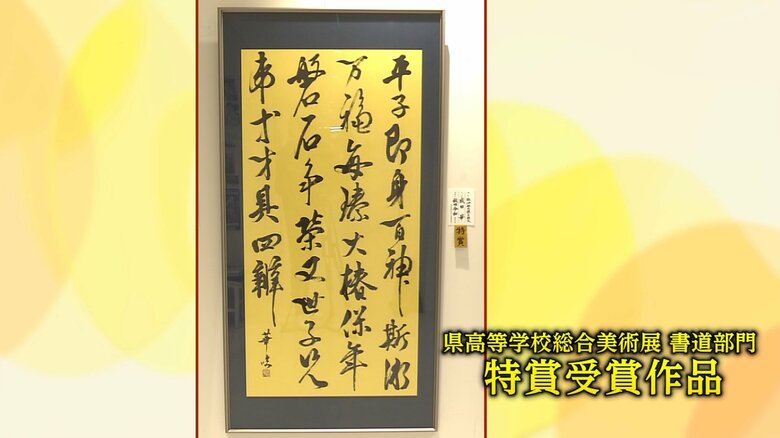 平子即身百神斯衛
万福毎臻大椿保年
磐石争榮又世子
才具四
特賞
県高等学校総合美術展 書道部門
特賞受賞作品